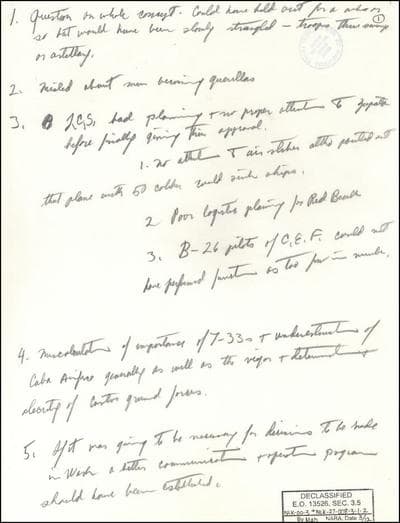 1. Question on whole concept. Could have held out for a
so but would have been slowly strangled — troops thru swamp
or artillery.
①
2. Misled about men becoming guerrillas
3. J.C.S. bad planning + no proper attention to Zapata
before finally giving their approval.
1. no attention to air strikes altho pointed out
that plane with 50 caliber could sink ships.
2 Poor logistics planning for Red Beach
3. B-26 pilots of C.E.F. could not
have performed function as too few in number.
4. Miscalculation of importance of T-33s + underestimation of
Cuba Airforce generally as well as the vigor + determination +
of Castro ground forces.
5. If it was going to be necessary for decisions to be made
in Wash a better communication + reporting program
should have been established.
DECLASSIFIED
E.O. 13526, SEC. 3.5
NARA, Date